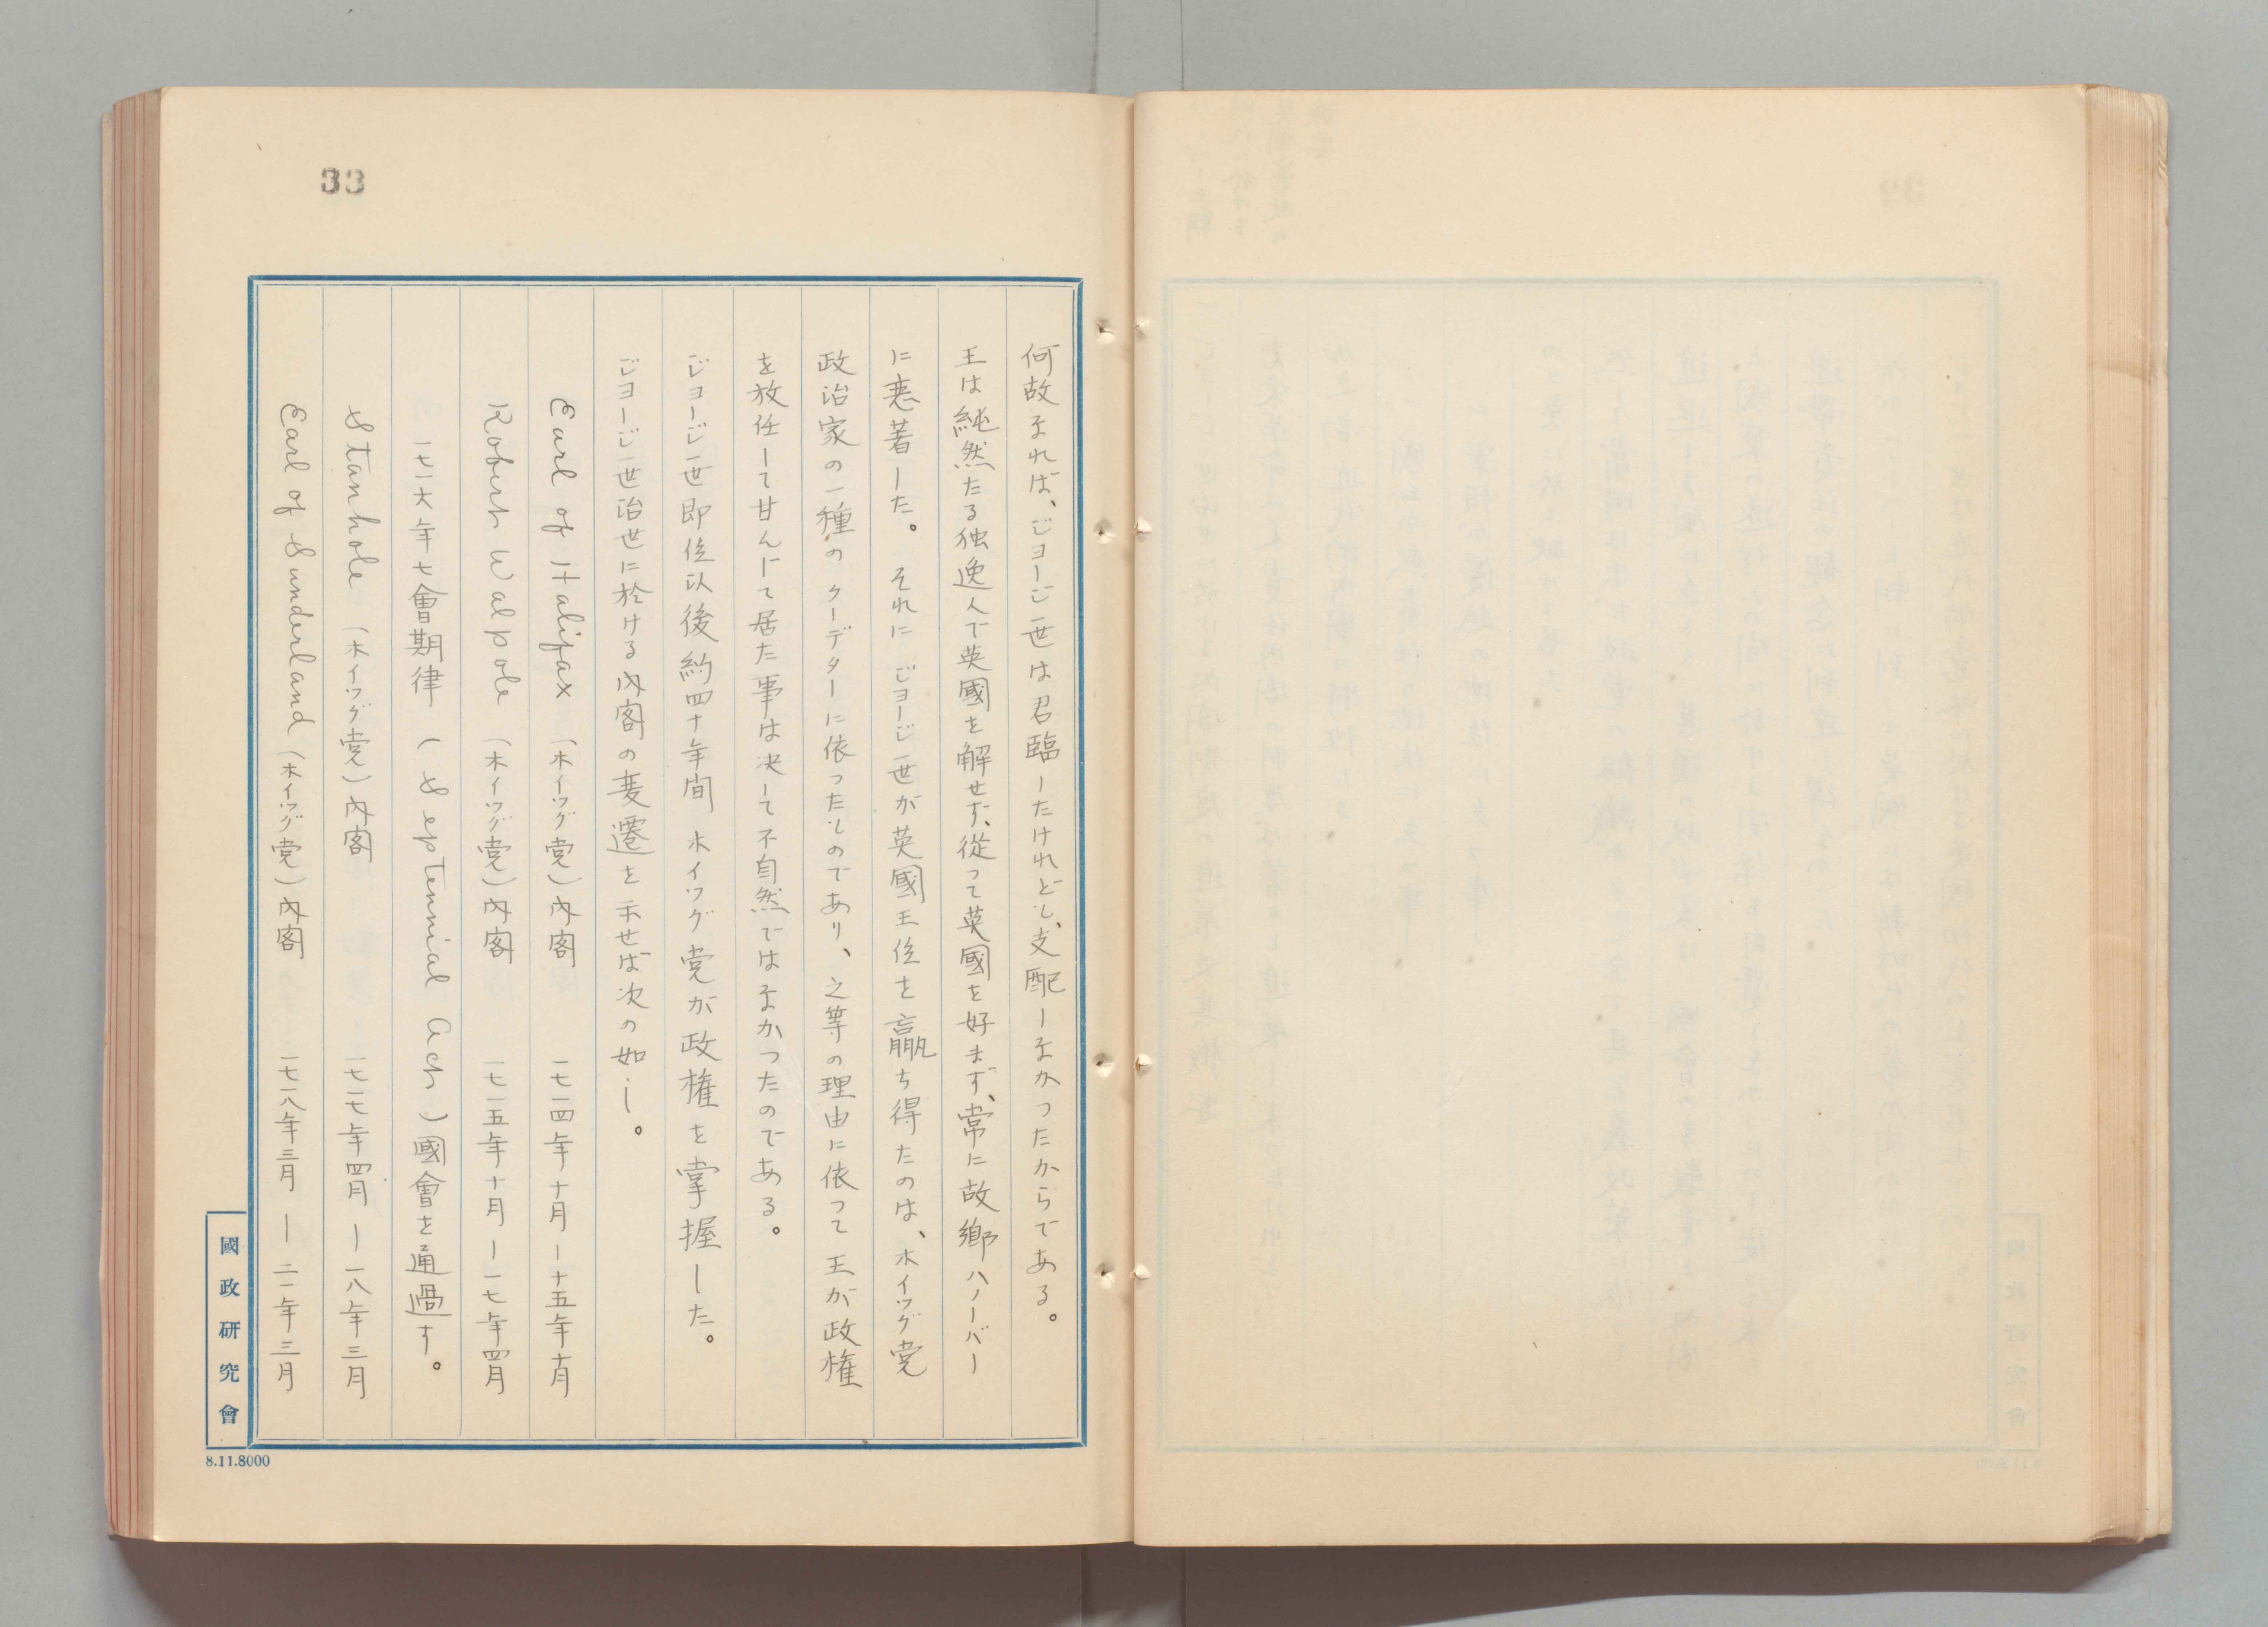 33
何故なれば、ジョージ一世は君臨したけれども、支配しなかったからである。
王は純然たる独逸人で英國を解せず、從って英國を好まず、常に故郷ハノーバー
に恋着した。それにジョージ一世が英國王位を贏ち得たのは、ホイッグ党
政治家の一種のクーデターに依ったものであり、之等の理由に依って王が政権
を放任して甘んじて居た事は決して不自然ではなかったのである。
ジョージ一世即位以後約四十年間ホイッグ党が政権を掌握した。
ジョージ一世治世に於ける内閣の変遷を示せば次の如し。
Earl of Halifax（ホイッグ党）内閣 一七一四年十月ー十五年十月
Robert Walpole（ホイッグ党）内閣 一七一五年十月ー一七年四月
一七一六年七會期律（Septennial Act）國會を通過す。
Stanhole（ホイッグ党）内閣 一七一七年四月ー一八年三月
Earl of Sunderland（ホイッグ党）内閣 一七一八年三月ー二一年三月
國政研究會
8.11.8000